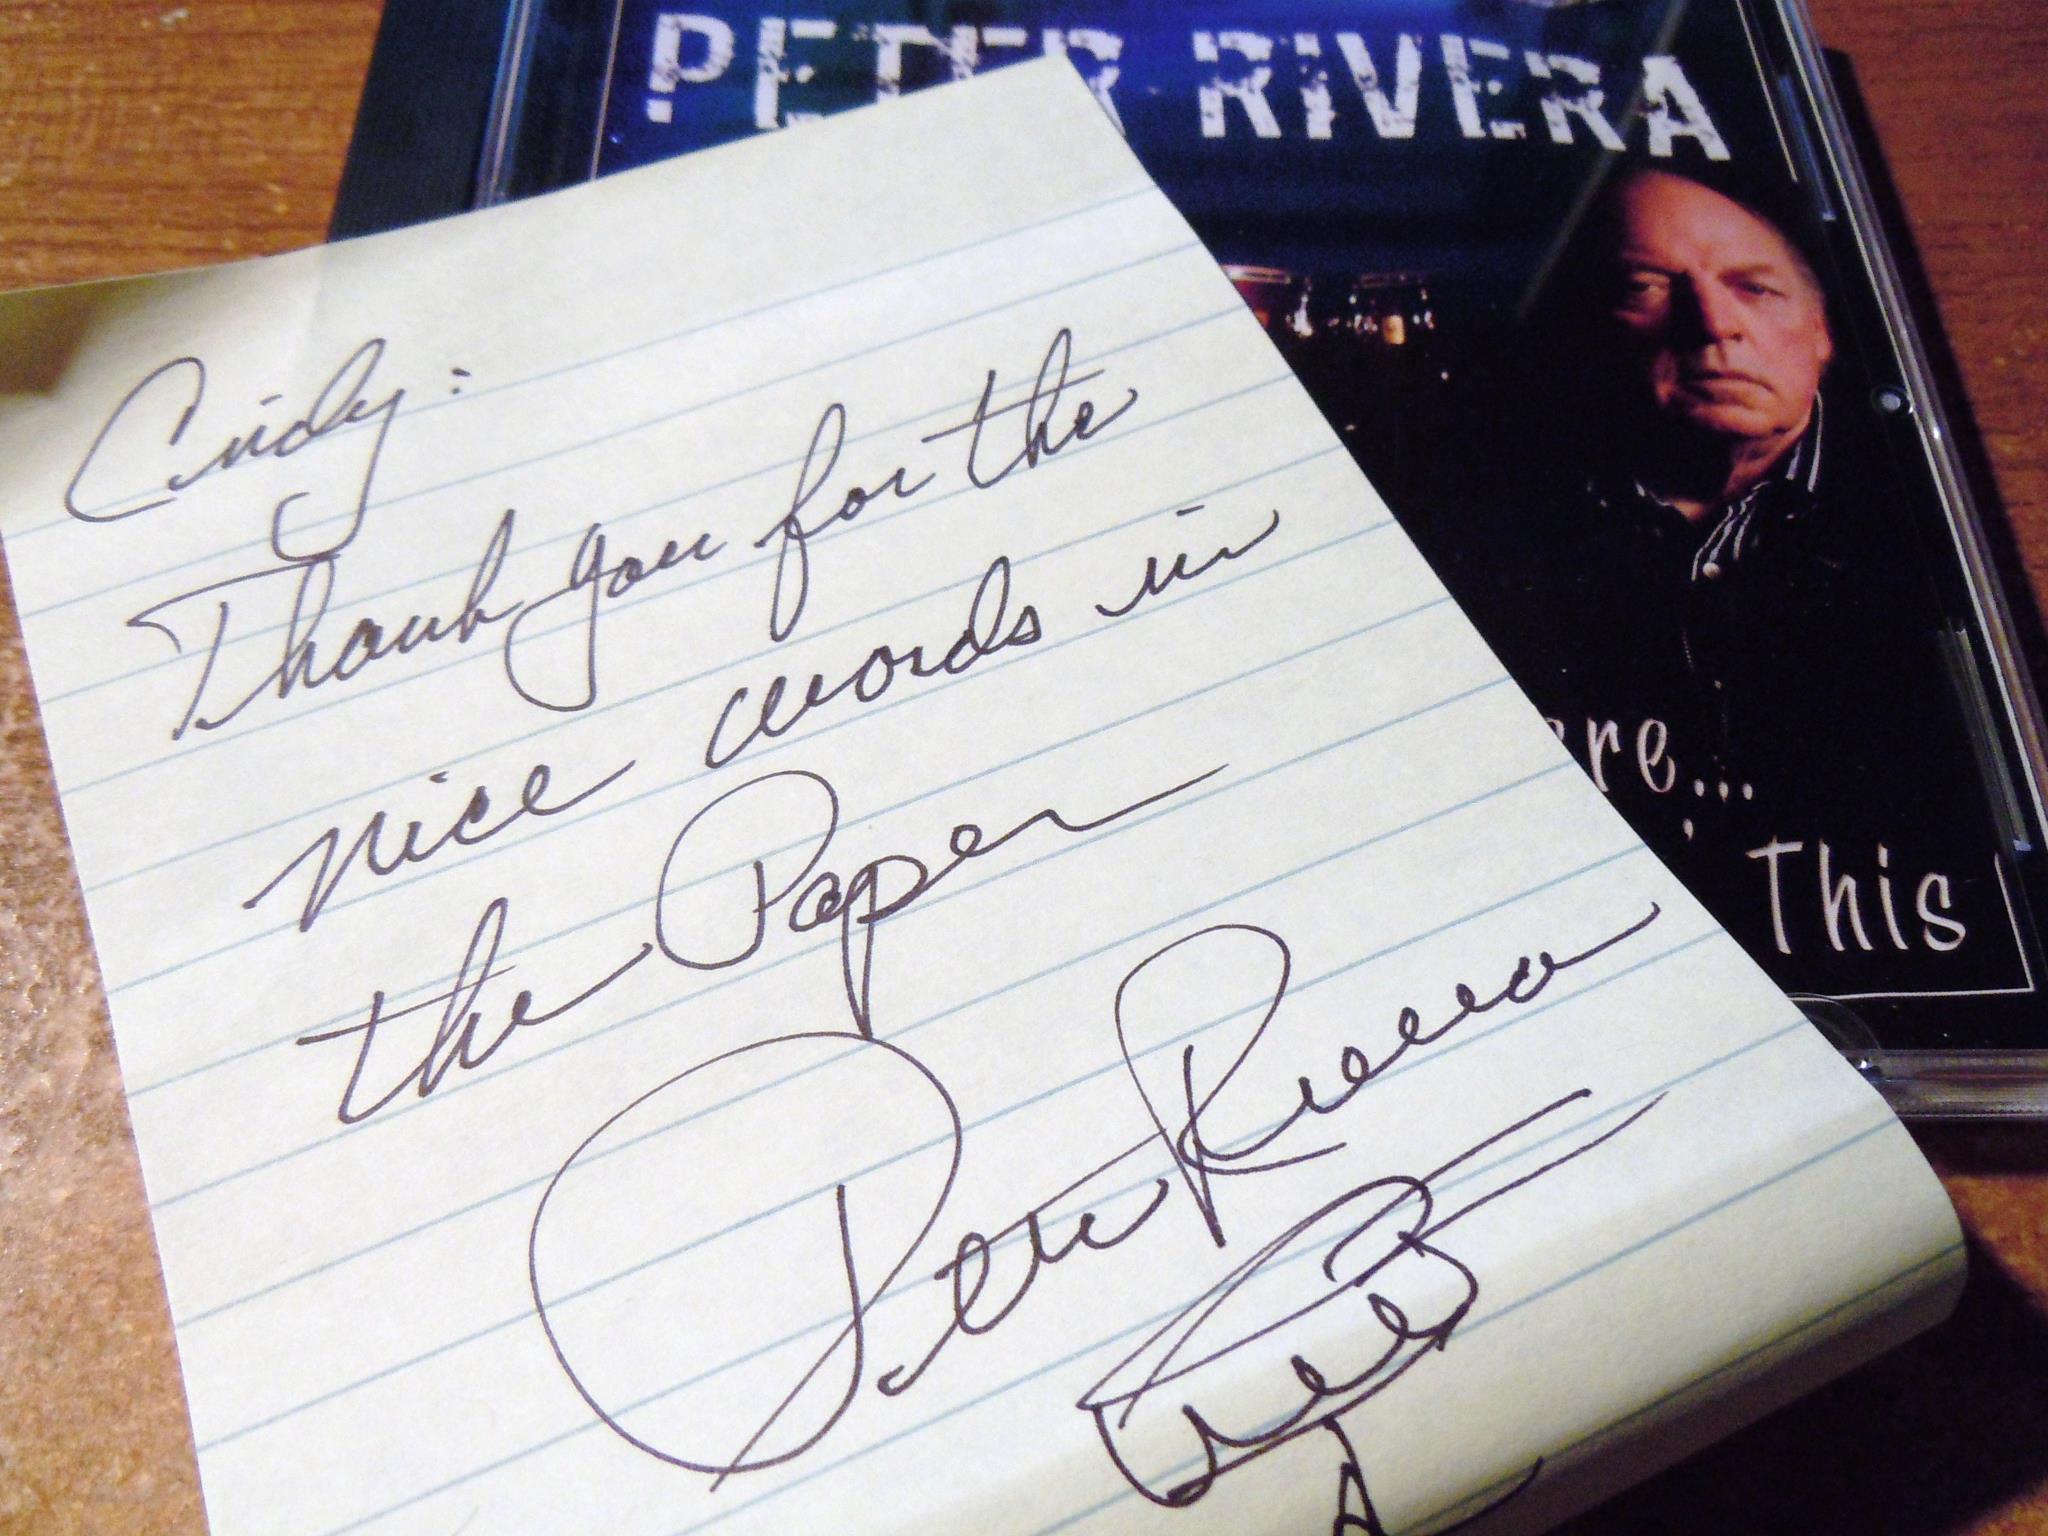 PETER RIVERA
Cindy:
Thank you for the
nice words in
the Paper
Peter Rivera
ere...
This